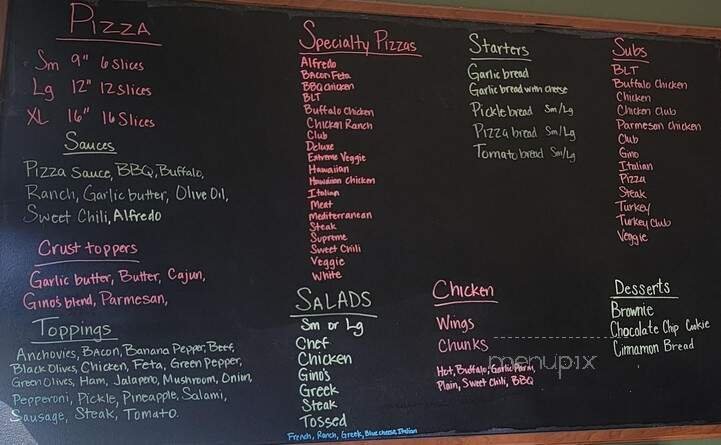 Pizza
Sm 9" 6 slices
Lg 12" 12 slices
XL 16" 16 slices
Sauces
Pizza sauce, BBQ, Buffalo,
Ranch, Garlic butter, Olive Oil,
Sweet Chili, Alfredo
Crust toppers
Garlic butter, Butter, Cajun,
Gino's blend, Parmesan,
Toppings
Anchovies, Bacon, Banana Pepper, Beef,
Black Olives, Chicken, Feta, Green Pepper,
Green Olives, Ham, Jalapeno, Mushroom, Onion,
Pepperoni, Pickle, Pineapple, Salami,
Sausage, Steak, Tomato.
Specialty Pizzas
Alfredo
Bacon Feta
BBQ chicken
BLT
Buffalo Chicken
Chicken Ranch
Club
Deluxe
Extreme Veggie
Hawaiian
Hawaiian Chicken
Italian
Meat
Mediterranean
Steak
Supreme
Sweet Chili
Veggie
White
SALADS
Sm or Lg
Chef
Chicken
Gino's
Greek
Steak
Tossed
French, Ranch, Greek, Blue cheese, Italian
Starters
Garlic bread
Garlic bread with cheese
Pickle bread Sm/Lg
Pizza bread Sm/Lg
Tomato bread Sm/Lg
Chicken
Wings
Chunks
Hot, Buffalo, Garlic Parm,
Plain, Sweet Chili, BBQ
Subs
BLT
Buffalo Chicken
Chicken
Chicken Club
Parmesan Chicken
Club
Gino
Italian
Pizza
Steak
Turkey
Turkey Club
Veggie
Desserts
Brownie
Chocolate Chip Cookie
Cinnamon Bread
menupix